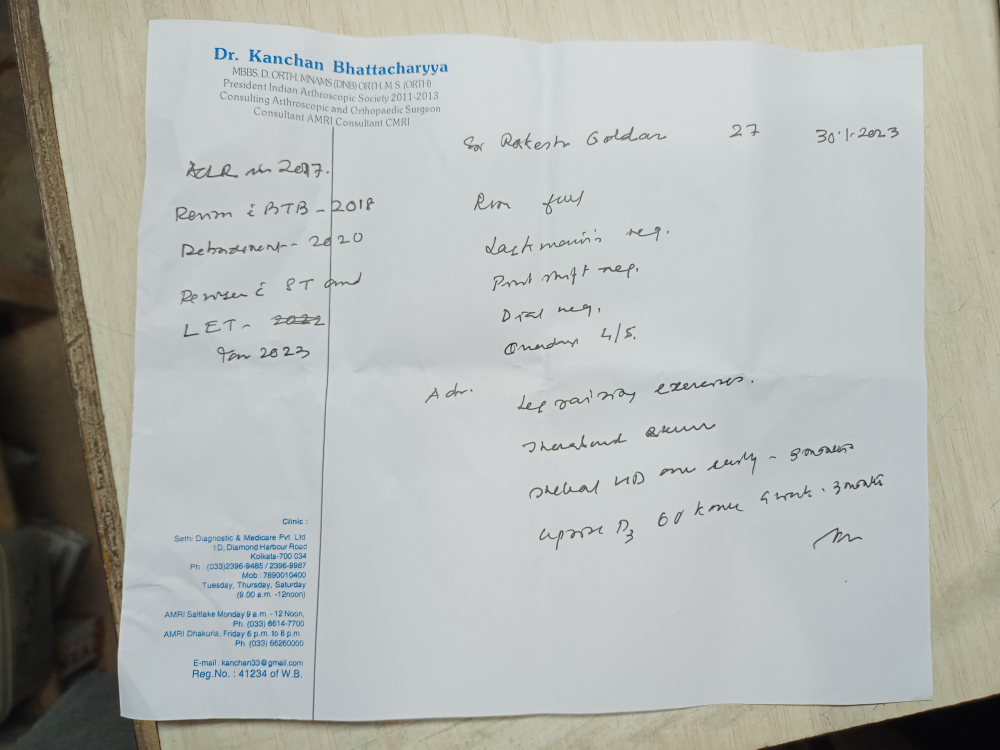 Dr. Kanchan Bhattacharyya
MBBS. D. ORTH. MNAMS (DNB) ORTH. M. S. (ORTH)
President Indian Arthroscopic Society 2011-2013
Consulting Arthroscopic and Orthopaedic Surgeon
Consultant AMRI Consultant CMRI
Rakesh Goldar 27 30.1.2023
ACLR in 2017.
BTB - 2018
Debridement - 2020
ST and
LET - 2022
Jan 2023
full
Lachman's neg.
shift neg.
Dial neg.
4/5.
Adv.
Leg raising exercises.
Theraband
HD one - 3 months
D3 60 k once a week . 3 months
Clinic :
Sethi Diagnostic & Medicare Pvt. Ltd
1D, Diamond Harbour Road
Kolkata-700 034
Ph : (033)2396-9485 / 2396-9987
Mob : 7890010400
Tuesday, Thursday, Saturday
(9.00 a.m. -12noon)
AMRI Saltlake Monday 9 a.m. - 12 Noon,
Ph. (033) 6614-7700
AMRI Dhakuria, Friday 6 p.m. to 8 p.m.
Ph. (033) 66260000
E-mail : kanchan33@gmail.com
Reg.No. : 41234 of W.B.